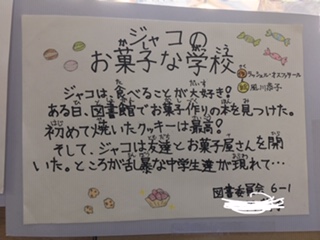 ジャコの
お菓子な学校
ラッシェル・オスファテール
風川恭子
ジャコは、食べることが大好き!
ある日、図書館でお菓子作りの本を見つけた。
初めて焼いたクッキーは最高!
そして、ジャコは友達とお菓子屋さんを開
いた。ところが乱暴な中学生達が現れて…
図書委員会 6-1